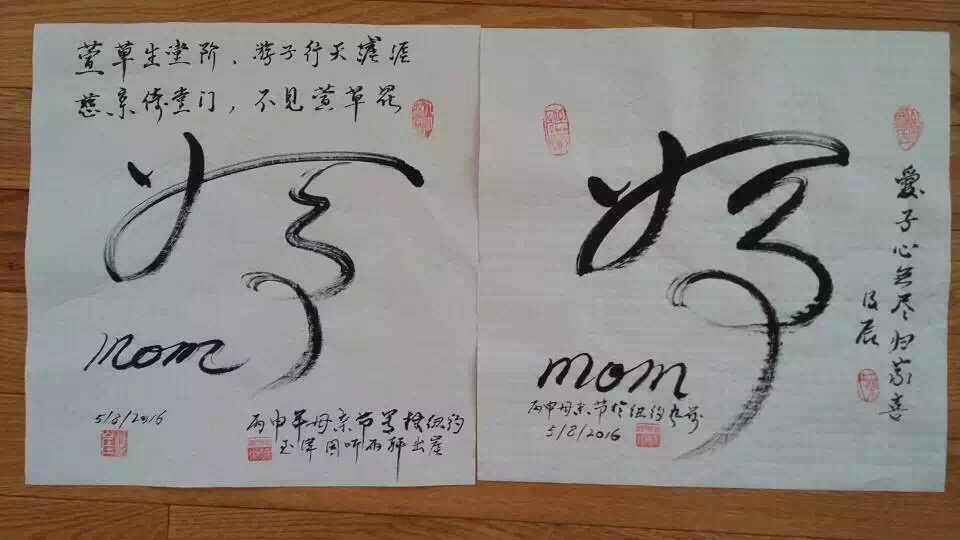 萱草生堂阶，游子行天涯
慈亲倚堂门，不见萱草花
妈
mom
5/8/2016
丙申年母亲节 纽约
听雨轩
妈
爱子心无尽归家喜
及辰
mom
丙申母亲节于纽约
5/8/2016